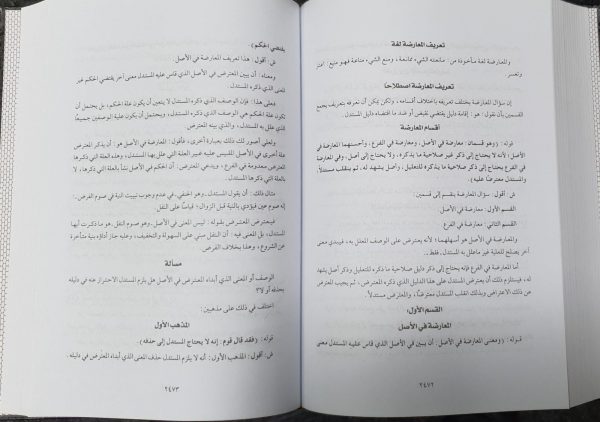 تعريف المعارضة لغة
والمعارضة لغة مأخوذة من: مانعته الشيء ممانعة، ومنع الشيء مناعة فهو منيع: اعتز
وتعسر.
تعريف المعارضة اصطلاحاً
إن سؤال المعارضة يختلف تعريفه باختلاف أقسامه، ولكن يمكن أن نعرفه بتعريف يجمع
القسمين بأن نقول: هو: إقامة دليل يقتضي نقيض أو ضد ما اقتضاه دليل المستدل.
أقسام المعارضة
قوله: (وهو قسمان: معارضة في الأصل، ومعارضة في الفرع، وأحسنهما المعارضة في
الأصل؛ لأنه لا يحتاج إلى ذكر غير صلاحية ما يذكره، ولا يحتاج إلى أصل، وفي المعارضة
في الفرع يحتاج إلى ذكر صلاحية ما يذكره للتعليل، وأصل يشهد له، ثم ينقلب مستدلاً،
والمستدل معترضاً عليه).
ش: أقول: سؤال المعارضة ينقسم إلى قسمين:
القسم الأول: معارضة في الأصل.
القسم الثاني: معارضة في الفرع
والمعارضة في الأصل هو أسهلهما؛ لأنه يعترض على الوصف المعلل به، فيبدي معنى
آخر يصلح للعلية غير ما علل به المستدل فقط.
أما المعارضة في الفرع فإنه يحتاج إلى ذكر دليل صلاحية ما ذكره للتعليل وذكر أصل يشهد
له، فيستلزم ذلك أن يعترض المستدل على هذا الدليل الذي ذكره المعترض، ثم يجيب المعترض
عن ذلك الاعتراض وبذلك تنقلب المستدل معترضاً، والمعترض مستدلاً.
القسم الأول:
المعارضة في الأصل
قوله: (ومعنى المعارضة في الأصل: أن يبين في الأصل الذي قاس عليه المستدل معنى
٢٤٧٢
يقتضي الحكم)
ش: أقول: هذا تعريف المعارضة في الأصل.
ومعناه: أن يبين المعترض في الأصل الذي قاس عليه المستدل معنى آخر يقتضي الحكم غير
المعنى الذي ذكره المستدل.
فعلى هذا: فإن الوصف الذي ذكره المستدل لا يتعين أن يكون علة الحكم، بل يحتمل أن
تكون علة الحكم هي الوصف الذي ذكره المستدل، ويحتمل أن يكون علية الوصفين جميعاً
الذي علل به المستدل، والذي بينه المعترض.
ولعلي أصور لك ذلك بعبارة أخرى، فأقول: المعارضة في الأصل هو: أن يذكر المعترض
علة أخرى في الأصل المقيس عليه غير العلة التي علل بها المستدل، وهذه التي ذكرها
المعترض معدومة في الفرع، ويدعي المعترض: أن الحكم في الأصل نشأ بالعلة التي ذكرها، لا
بالعلة التي ذكرها المستدل.
مثال ذلك: أن يقول المستدل. وهو الحنفي. في عدم وجوب تبييت النية في صوم الفرض:
إنه صوم عين فيؤدي بالنية قبل الزوال، قياساً على النفل.
فيعترض المعترض بقوله: ليس المعنى في الأصل. وهو صوم النفل. هو ما ذكرت أيها
المستدل، بل المعنى فيه: أن النفل مبني على السهولة والتخفيف، وعليه جاز أداؤه بنية متأخرة
عن الشروع، وهذا بخلاف الفرض.
مسألة
الوصف أو المعنى الذي أبداه المعترض في الأصل هل يلزم المستدل الاحتراز عنه في دليله
بحذفه أو لا؟
اختلف في ذلك على مذهبين:
المذهب الأول
قوله: (فقد قال قوم: إنه لا يحتاج المستدل إلى حذفه).
ش: أقول: المذهب الأول: أنه لا يلزم المستدل حذف المعنى الذي أبداه المعترض في دليله.
٢٤٧٣